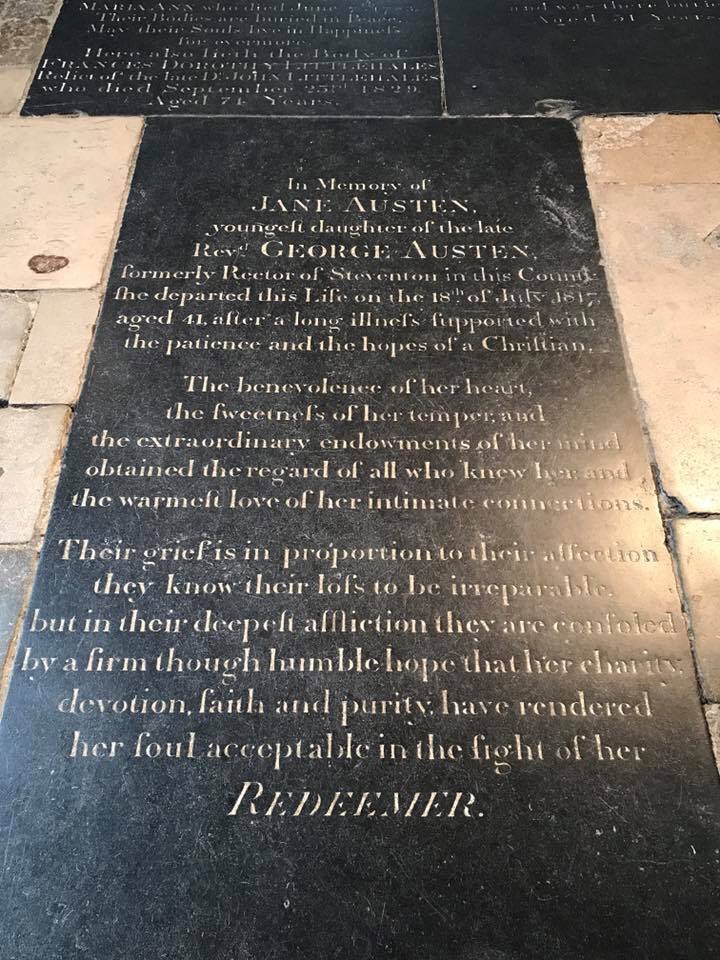 MARIA ANN who died June
Their Bodies are buried in Peace,
May their Souls live in Happineſs
for evermore.
Here also lieth the Body of
FRANCES DOROTHY LITTLEHALES
Relict of the late Dr. JOHN LITTLEHALES
who died September 23rd 1829.
Aged 74 Years.
and was there buried
Aged 51 Years
In Memory of
JANE AUSTEN,
youngeſt daughter of the late
Revd. GEORGE AUSTEN,
formerly Rector of Steventon in this County
ſhe departed this Life on the 18th of July 1817,
aged 41, after a long illneſs ſupported with
the patience and the hopes of a Chriſtian.
The benevolence of her heart,
the ſweetneſs of her temper, and
the extraordinary endowments of her mind
obtained the regard of all who knew her, and
the warmeſt love of her intimate connections.
Their grief is in proportion to their affection
they know their loſs to be irreparable,
but in their deepeſt affliction they are conſoled
by a firm though humble hope that her charity,
devotion, faith and purity, have rendered
her ſoul acceptable in the ſight of her
REDEEMER.